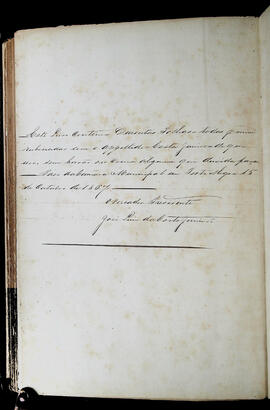 Este Livro contem Duzentas folhas todas por mim
rubricadas com o appellido Costa Junior de que
uso, sem borrão ou cousa alguma que duvida faça
da Camara Municipal 15
de Outubro de 1867
Vereador Presidente
José da Costa Junior